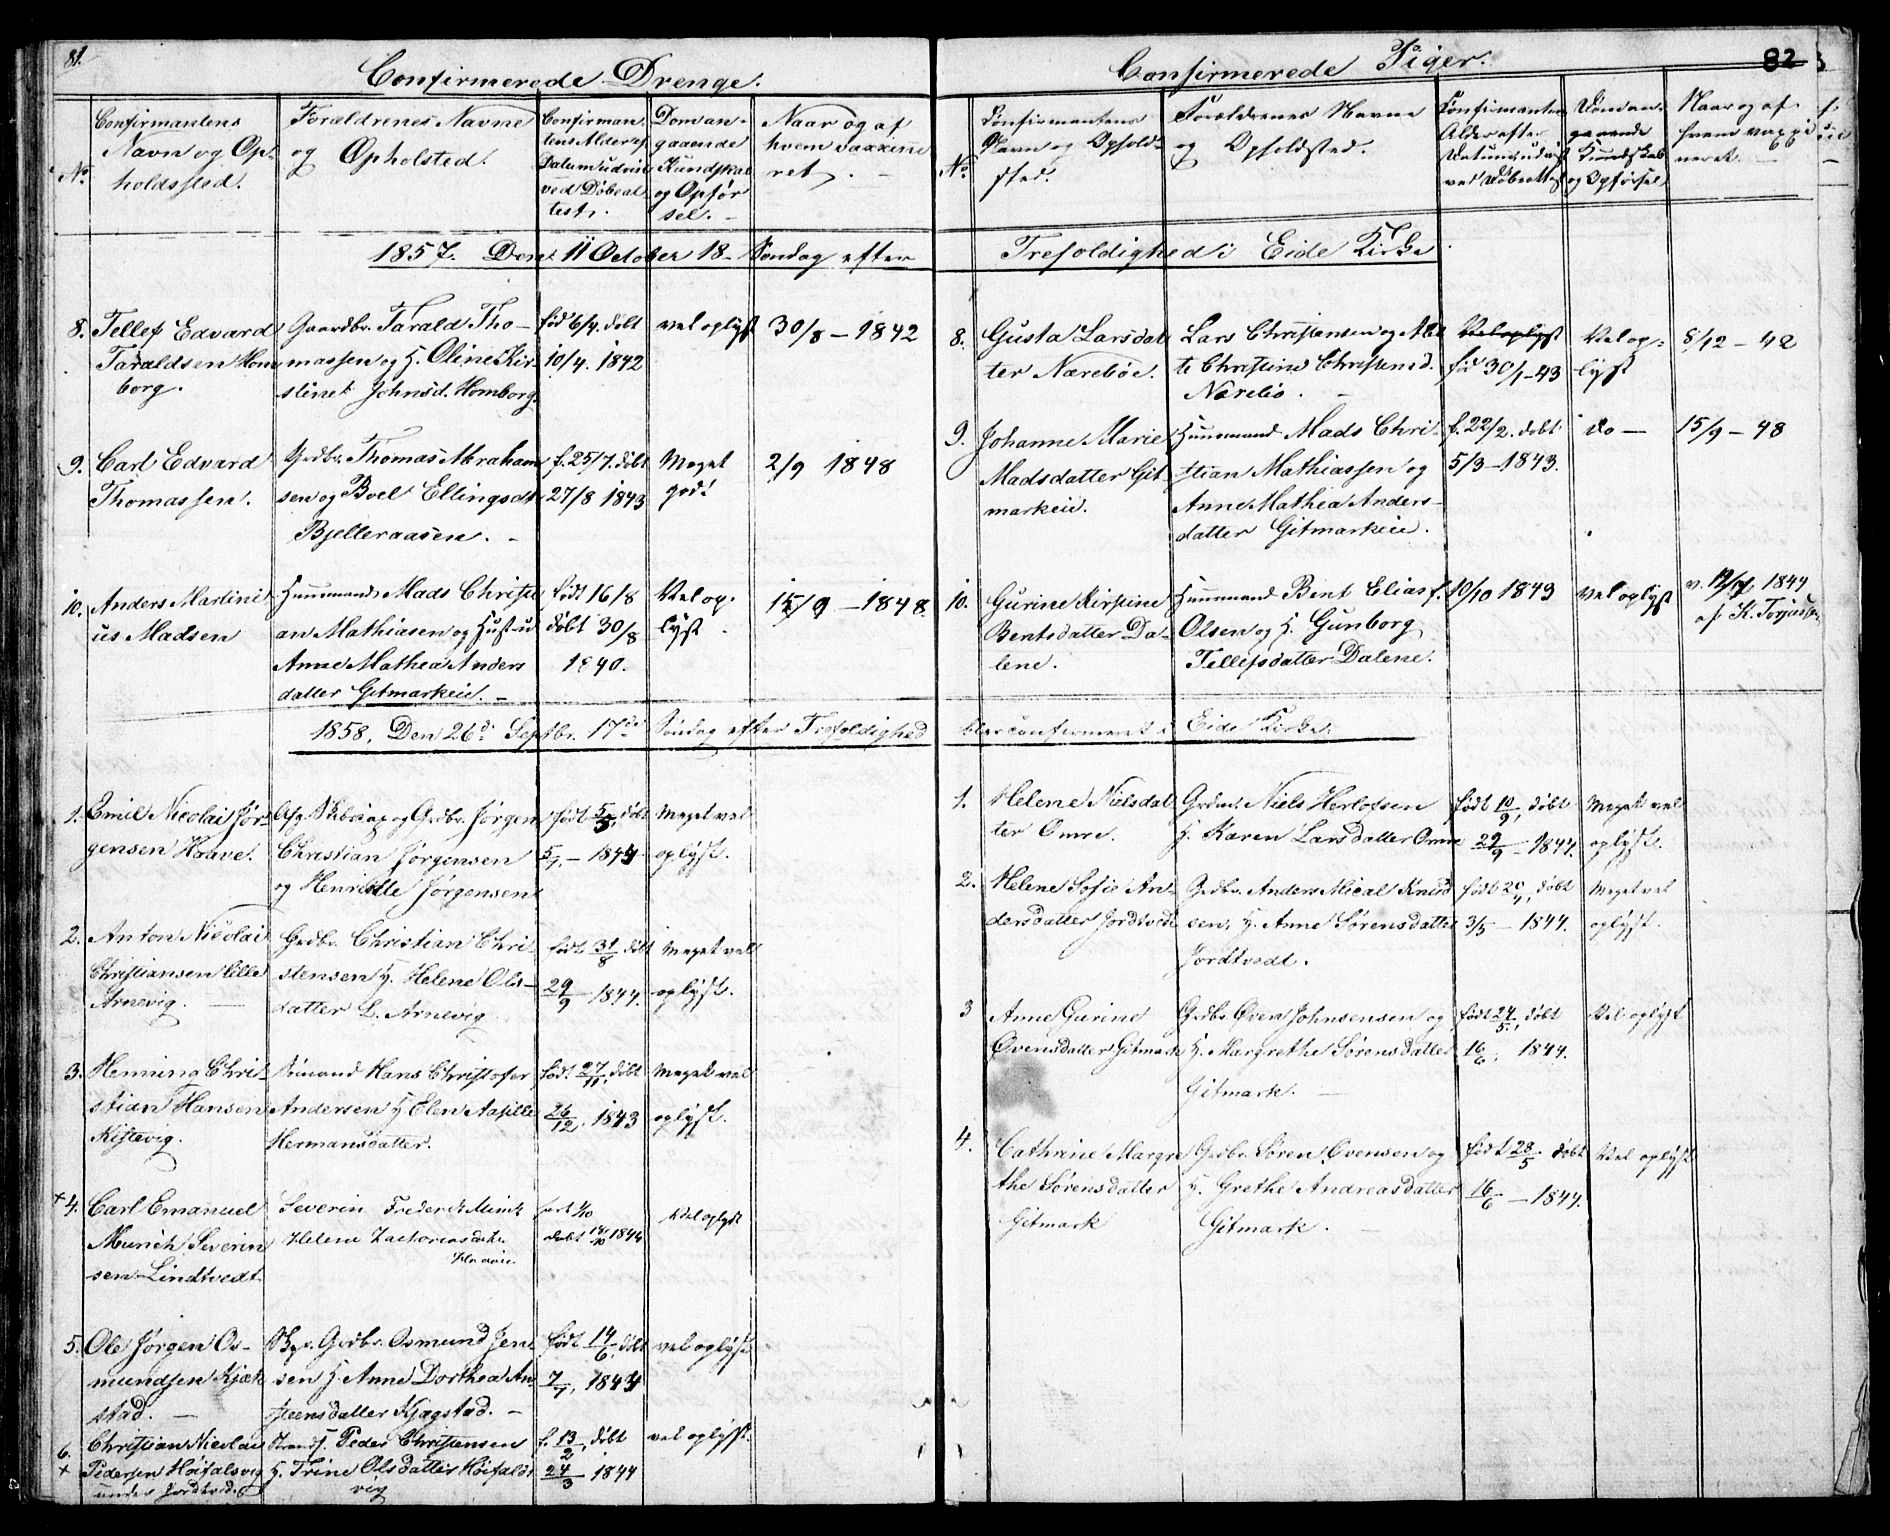 81.
Confirmerede Drenge.
No.
Confirmantens
Navn og Op-
holdssted.
Forældrenes Navne
og Opholsted.
Confirman-
tens Alder ef.
Datum udvist
ved Døbeat-
test.
Dom an-
gaaende
Kundskab
og Opfør
sel.
Naar og af
hvem vaxine
ret.
1857. Den 11 October 18- Søndag efter
8. Tellef Edvard
Taraldsen Hom
borg.
Gaardbr. Tarald Tho-
massen og H. Oline Kir-
stine Johnsd. Homborg.
fød 6/4. døbt
10/4. 1842
vel oplyst
30/8 - 1842
9. Carl Edvard
Thomassen.
Grdbr. Thomas Abraham
sen og Boel Ellingsdt
Bjelleraasen.
f. 25/7. døbt
27/8 1843
Meget
god!
2/9 1848
10. Anders Martini
us Madsen
Huusmand Mads Christi
an Mathiasen og Hustru
Anne Mathea Anders
datter Gitmarkeie.
født 16/8
døbt 30/8
1840.
Vel op-
lyst
15/9 - 1848.
1858. Den 26de Septbr. 17de Søndag efter Trefoldighed
1. Emil Nicolai Jør-
gensen Haave.
og Grdbr. Jørgen
Christian Jørgensen
og Henriette Jørgensen
født 5/5, døbt
5/7. - 1844
Meget vel
oplyst.
2. Anton Nicolai
Christiansen Lille
Arnevig.
Grdbr. Christian Chri-
stensen H. Helene Ols-
datter L. Arnevig
født 31/8 døbt
29/9 1844.
Meget vel
oplyst.
3. Henning Chri-
stian Hansen
Kistevig.
Sømand Hans Christofer
Andersen H. Elen Aasille
Hermansdatter.
født 27/11, døbt
26/12. 1843
Meget vel
oplyst.
+ 4. Carl Emanuel
Munich Severin
sen Lindtvedt
Severin Frederik Munch
Helene Zachariasdatr.
døbt 1844
Vel oplyst
5. Ole Jørgen Os-
mundsen Kjæk
stad.
Grdbr. Osmund Jen
sen H. Anne Dorthea An
steensdatter Kjægstad.
født 14/6, døbt
7/7, 1844
vel oplyst
6. Christian Nicolai
+ Pedersen Høifalsvig
under Jordtvedt
Peder Christensen
H. Trine Olsdatter Høifals
vig
f. 13/2, døbt
24/3 1844
vel oplyst.
82
Confirmerede Piger.
No.
Konfirmantens
Navn og Ophold-
sted.
Forældrenes Navne
og Opholdsted.
Konfirmantens
Alder efter
Datum udvist
ved Døbeattest
Dom an-
gaaende
Kundskab
og Opførsel
Naar og af
hvem vaxci
neret.
Trefoldighed i Eide Kirke
8. Gusta Larsdat
ter Nærebøe.
Lars Christiansen og Abel
te Christine Christensd.
Nærebø.
Vel oplyst
fød 30/1-43
Vel op-
lyst
8/12 - 42
9. Johanne Marie
Madsdatter Git
markeie.
Huusmand Mads Chri-
stian Mathiassen og
Anne Mathea Anders-
datter Gitmarkeie.
f. 22/2. døbt
5/3-1843.
do
15/9 - 48
10. Gurine Kirstine
Bentsdatter Da-
lene.
Huusmand Bent Elias
Olsen og H. Gunborg
Tellefsdatter Dalene.
f. 10/10 1843
vel oplyst
v. 12/7 1844
af K. Torjussen
blev confirmeret i Eide Kirke.
1. Helene Nielsdat
ter Omre.
Grdmd. Niels Herlofsen
H. Karen Larsdatter Omre
født 10/9, døbt
29/9 - 1844.
Meget vel
oplyst.
2. Helene Sofie An-
dersdatter Jordtvedt
Grdbr. Anders Micael Knud
sen, H. Anne Sørensdatter
Jordtvedt.
født 20/4, døbt
3/5 - 1844.
Meget vel
oplyst.
3 Anne Gurine
Øvensdatter Gitmark
Grdbr. Øven Johnsensen og
H. Margrethe Sørensdatter
Gitmark.
født 24/5, døbt
16/6. 1844.
Vel oplyst
4. Cathrine Margre
the Sørensdatter
Gitmark
Grdbr. Søren Ovensen og
H. Grethe Andreasdatter
Gitmark.
født 28/5 døbt
16/6 - 1844.
Vel oplyst